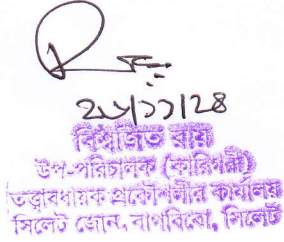 ২৮/১১/২৪
বিশ্বজিত রায়
উপ-পরিচালক (কারিগরী)
তত্ত্বাবধায়ক প্রকৌশলীর কার্যালয়
সিলেট জোন, বাপবিবো, সিলেট